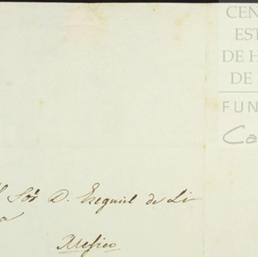 CEN
EST
DE H
DE
FUN
Ca
Sór D. Ezequiel de Li
a
Mexico